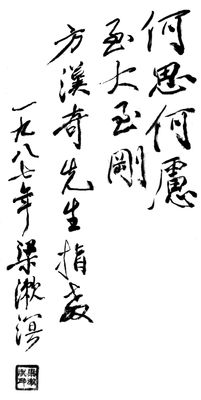 何思何慮
至大至剛
方漢奇先生指教
一九八七年梁漱溟